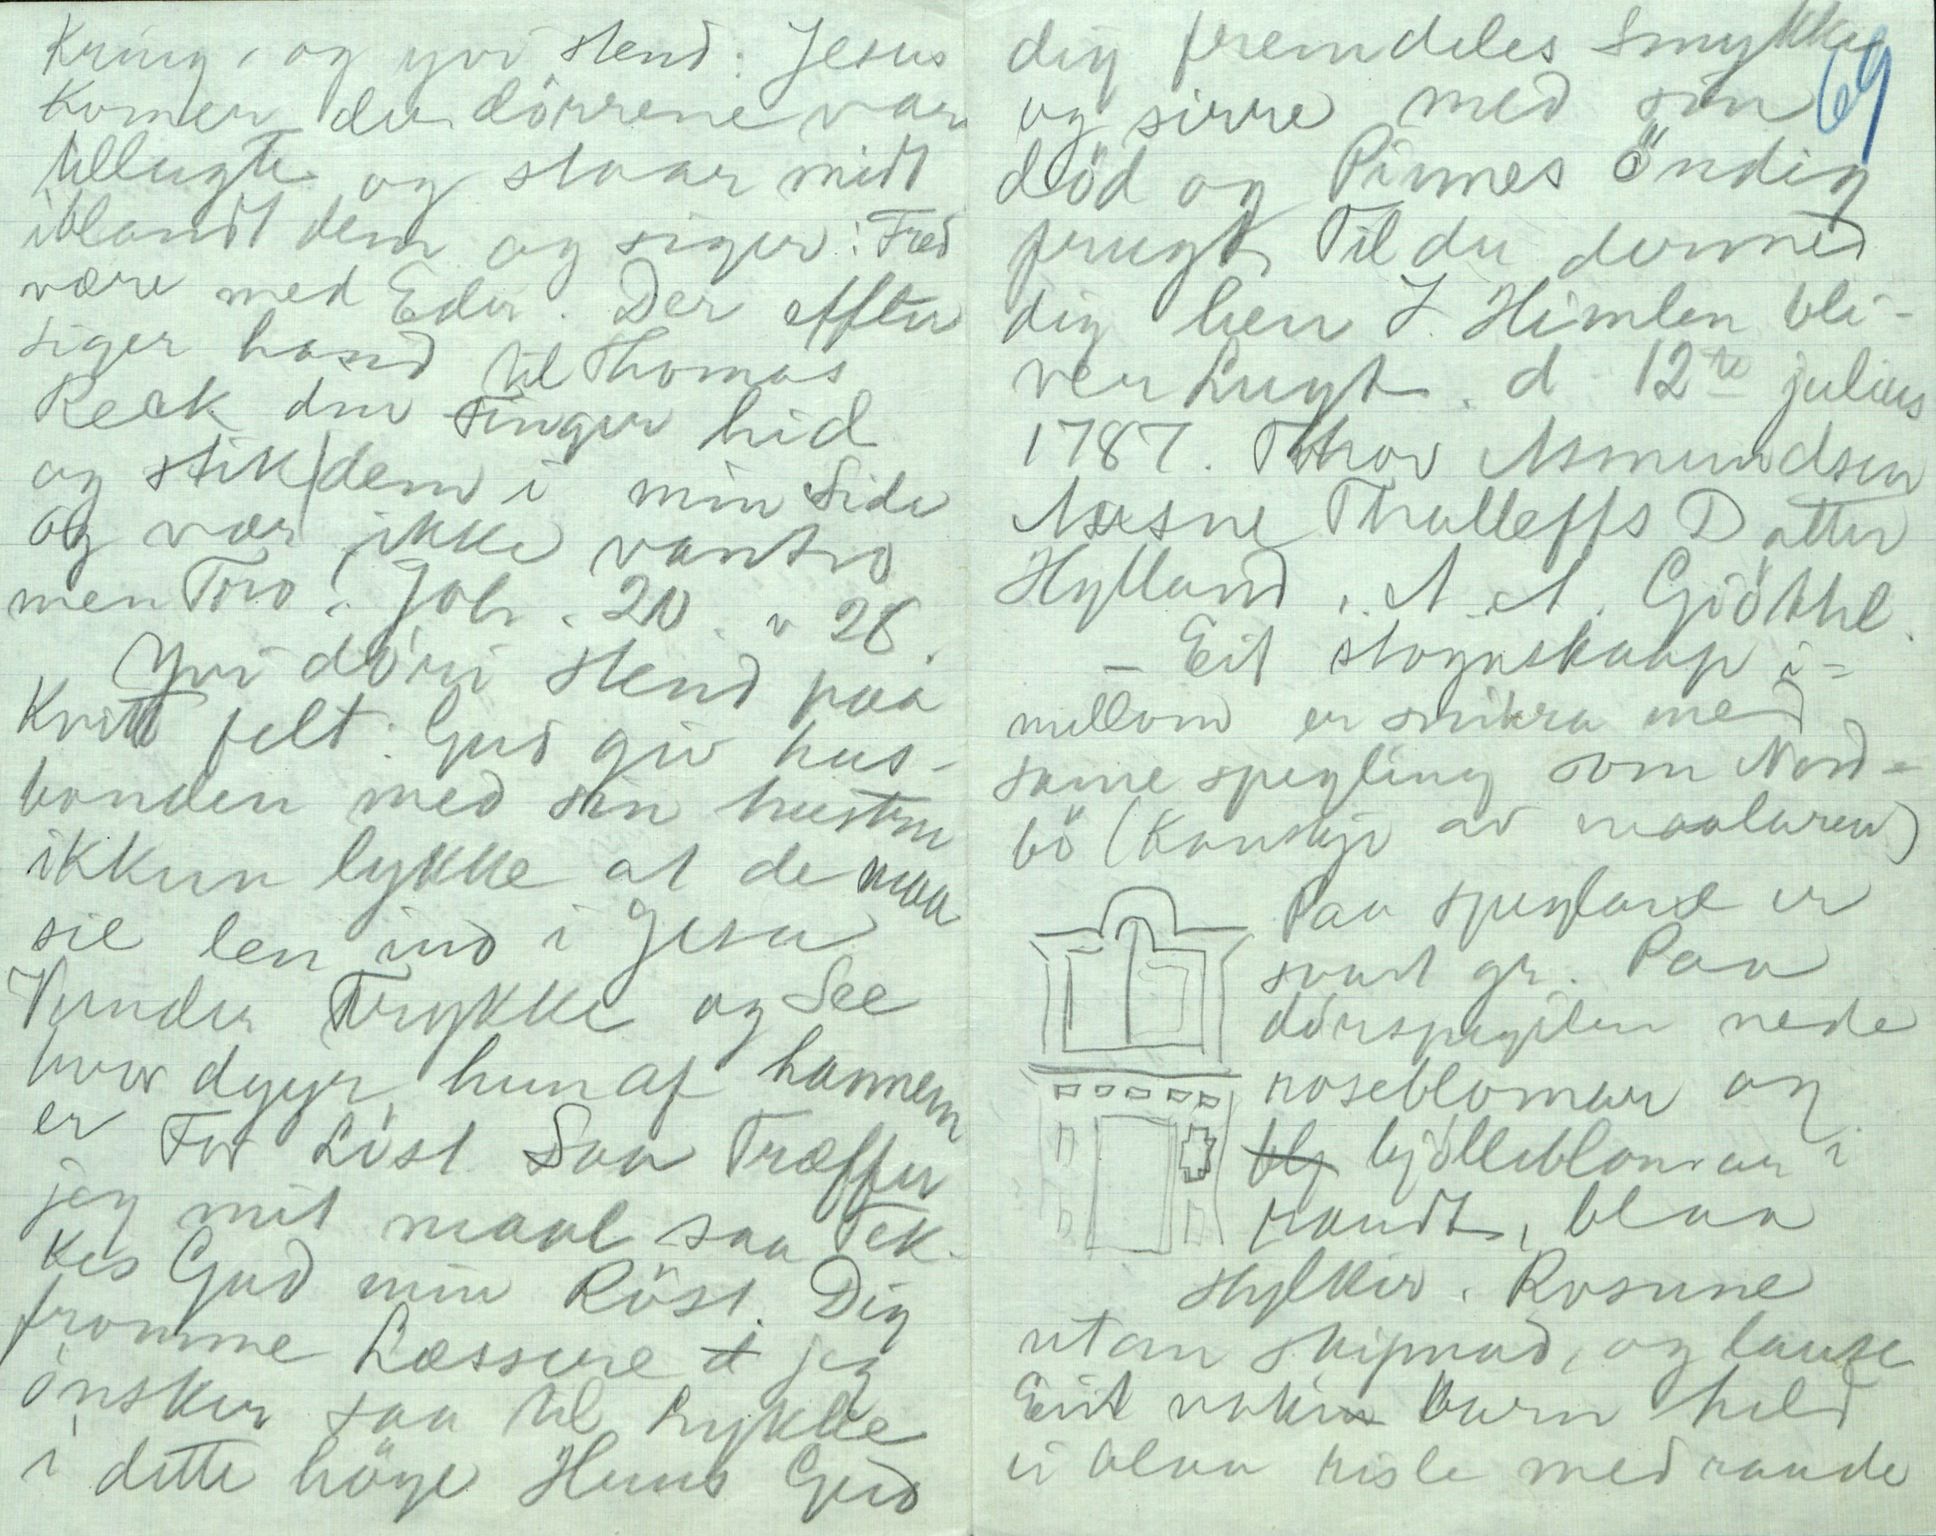 Kring, og yvi stend: Jesus
Komer du dörrene var
tillugte og staar midt
iblandt dem og siger: Fred
være med Eder. Der effter
siger hand til Thomas
Reck din finger hid
og stik dem i min Side
og vær ikke vantro
men Tro. Joh. 20. v 28.
Yvi döri stend paa
Kvitt felt: Gud giv hus-
bonden med sin hustru
ikkun lykke at de maa
sie len ind i Jesu
Vunder Trykke og See
hvor dyyr hun af hannem
er For Löst Saa Træffer
jeg mit maal saa Tek-
kes Gud min Röst. Dig
fromme Læssere jeg
önsker saa til Lykke
i dette höye Huus Gud
69
dig fremdeles Smykke
og sirre med sin
död og Pinnes öndig
frugt Til du dermed
dig hen I. Himlen bli-
ver Lugt. d. 12te julius
1787. Thor Asmundsen
Aasne Thalleffs Datter
Hylland. A. A. Giöthl.
- Eit stognskaap i-
millom er smikra med
same spegling som Nord-
bö (Kanskje av maalaren)
Paa speglane er
svart gr. Paa
dörspegilen nede
roseblomar og
bjölleblomar i
raudt, blaa
stylkir. Rosune
utan skipnad, og lause
Eeit naki barn held
ei blaa risle med raude